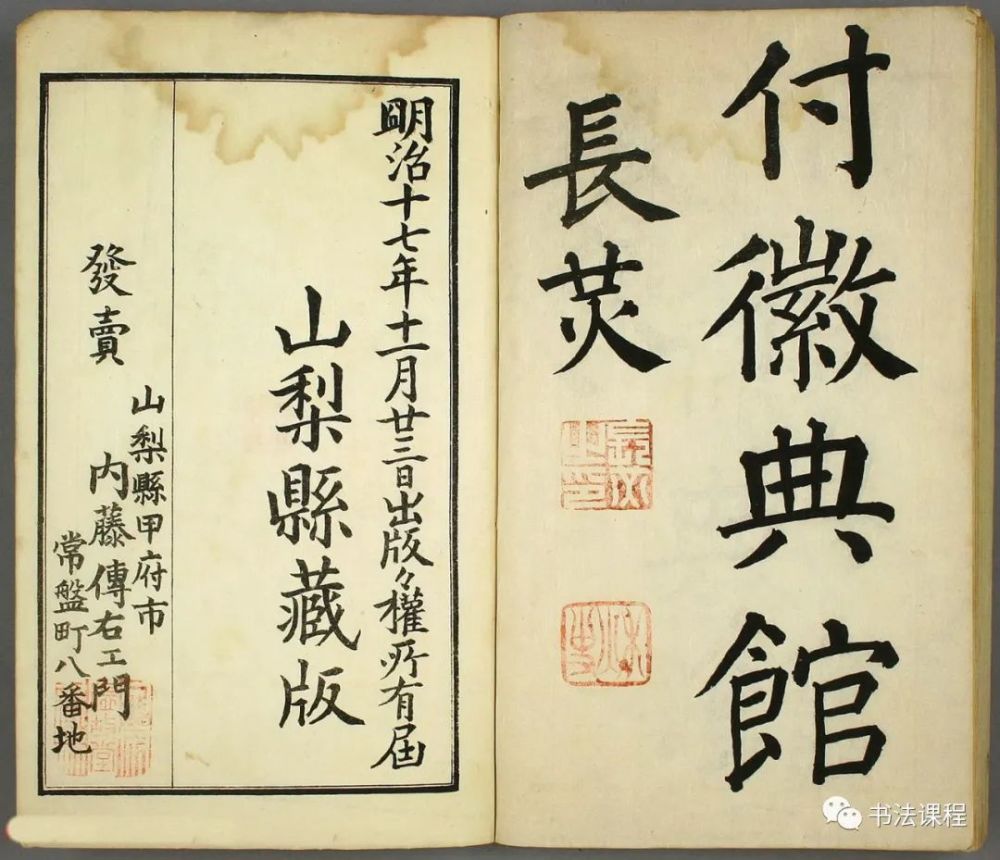 付徽典館
長炗
明治十七年十一月廿三日出版々權所有届
山梨縣藏版
發賣
山梨縣甲府市
内藤傳右エ門
常盤町八番地
书法课程